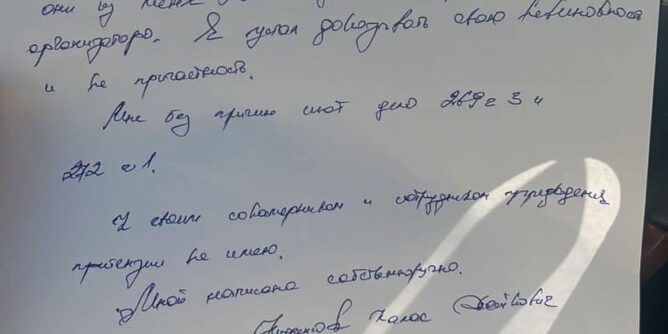 они из меня
организатора. Я устал доказывать свою невиновность
и не причастность.
Мне без причин шют дело 269 с 3 и
272 с 1.
К своим сокамерникам и сотрудникам учреждения
притензии не имею.
Мной написана собственноручно.